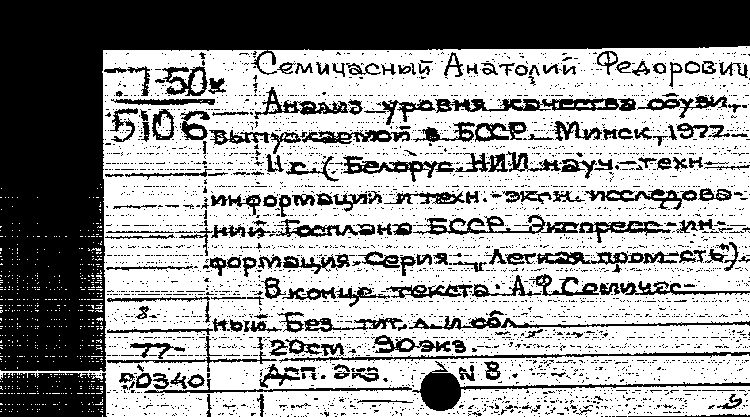 Семичасный Анатолий Федорович
Анализ уровня качества обуви,
выпускаемой в БССР. Минск, 1977
11 с. (Белорус. НИИ науч.-техн.
информации и техн.-экон. исследова-
ний Госплана БССР. Экспресс-ин-
формация. Серия: "Легкая пром-сть").
В конце текста: А.Ф. Семичас-
ный. Без тит. л. и обл.
20см. 90экз.
Деп. экз. N 8.
5106
8-
77-
50340